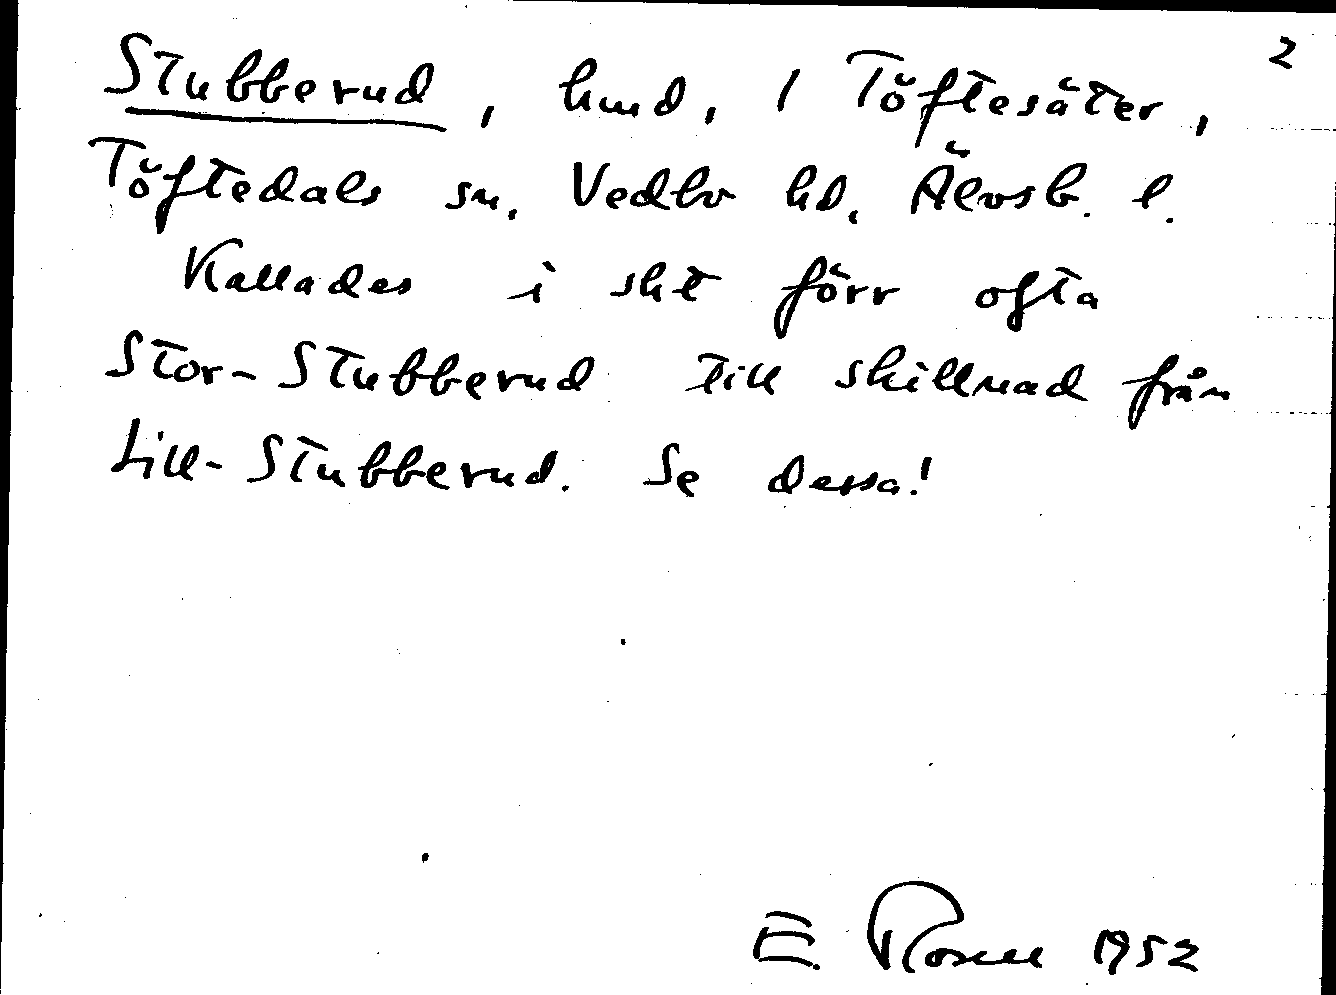 2
Stubberud, hmd, 1 Töftesäter,
Töftedals sn, Vedbo hd, Älvsb. l.
Kallades i skt förr ofta
Stor-Stubberud till skillnad från
Lill-Stubberud. Se dessa!
E. 1952